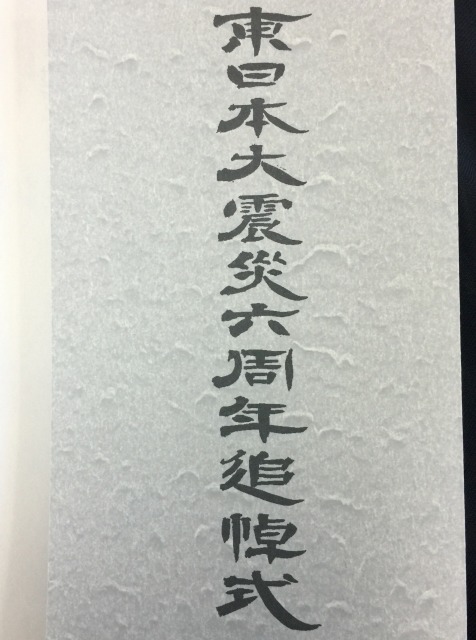 東日本大震災六周年追悼式